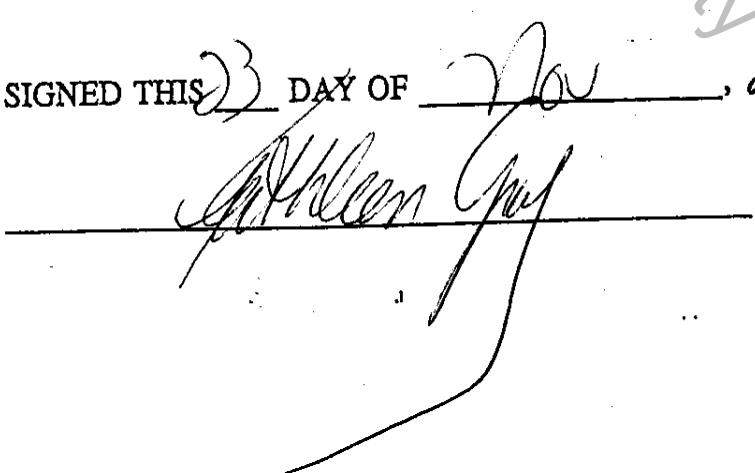 SIGNED THIS 23 DAY OF Nov,
Kathleen Gray